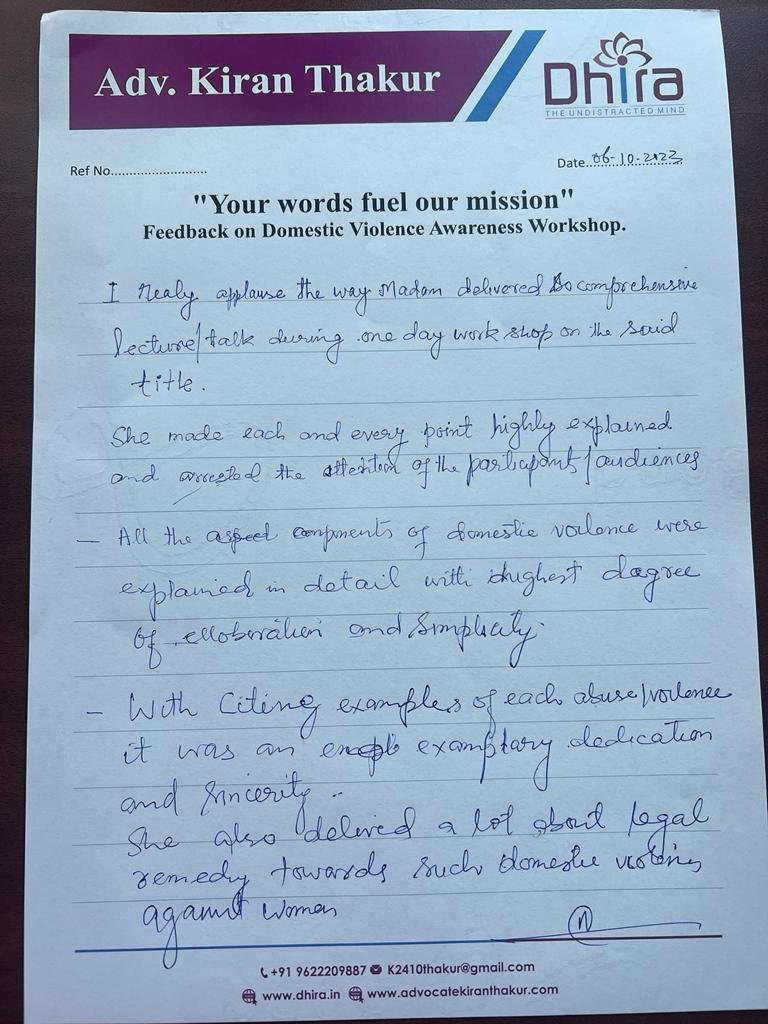 Adv. Kiran Thakur
Dhira
THE UNDISTRACTED MIND
Ref No..........................
Date..06-10-2023
"Your words fuel our mission"
Feedback on Domestic Violence Awareness Workshop.
I realy applause the way Madam delivered so comprehensive
lecture/talk during one day work shop on the said
title.
She made each and every point highly explained
and arrested the attention of the participants/audiences
- All the components of domestic voilence were
explained in detail with highest dagree
of elloboration and Simplicity.
- With Citing examples of each abuse/voilence
it was an examplary dedication
and Sincerity..
She also delived a lot about legal
remedy towards such domestic
against women
+91 9622209887 K2410thakur@gmail.com
www.dhira.in www.advocatekiranthakur.com